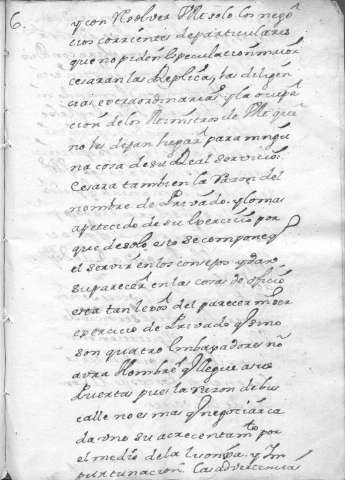 6.
y con Resolver VM solo los nego
cios corrientes de particulares
que no piden especulacion maior
cesaran las Replicas, las diligen
cias extraordinarias y la ocupa
cion de los Ministros de VM que
no les dejan lugar para ningu
na cosa de su Real servicio:
Cesara tambien la razon del
nombre de Privado, y lo mas
apetecido de su exercicio por
que de solo esto se compone q
el servir en los consejos y dar
su parecer en las cosas de oficio
esta tan lexos del parecer ni ser
exercicio de Privado q si no
son quatro Embaxadores no
avra Hombre q llegue a sus
Puertas pues la razon de bus
calle no es mas q negociar ca
da uno su acrecentamto por
el medio de la lisonja, y Im
purtunacion. Las advertencias